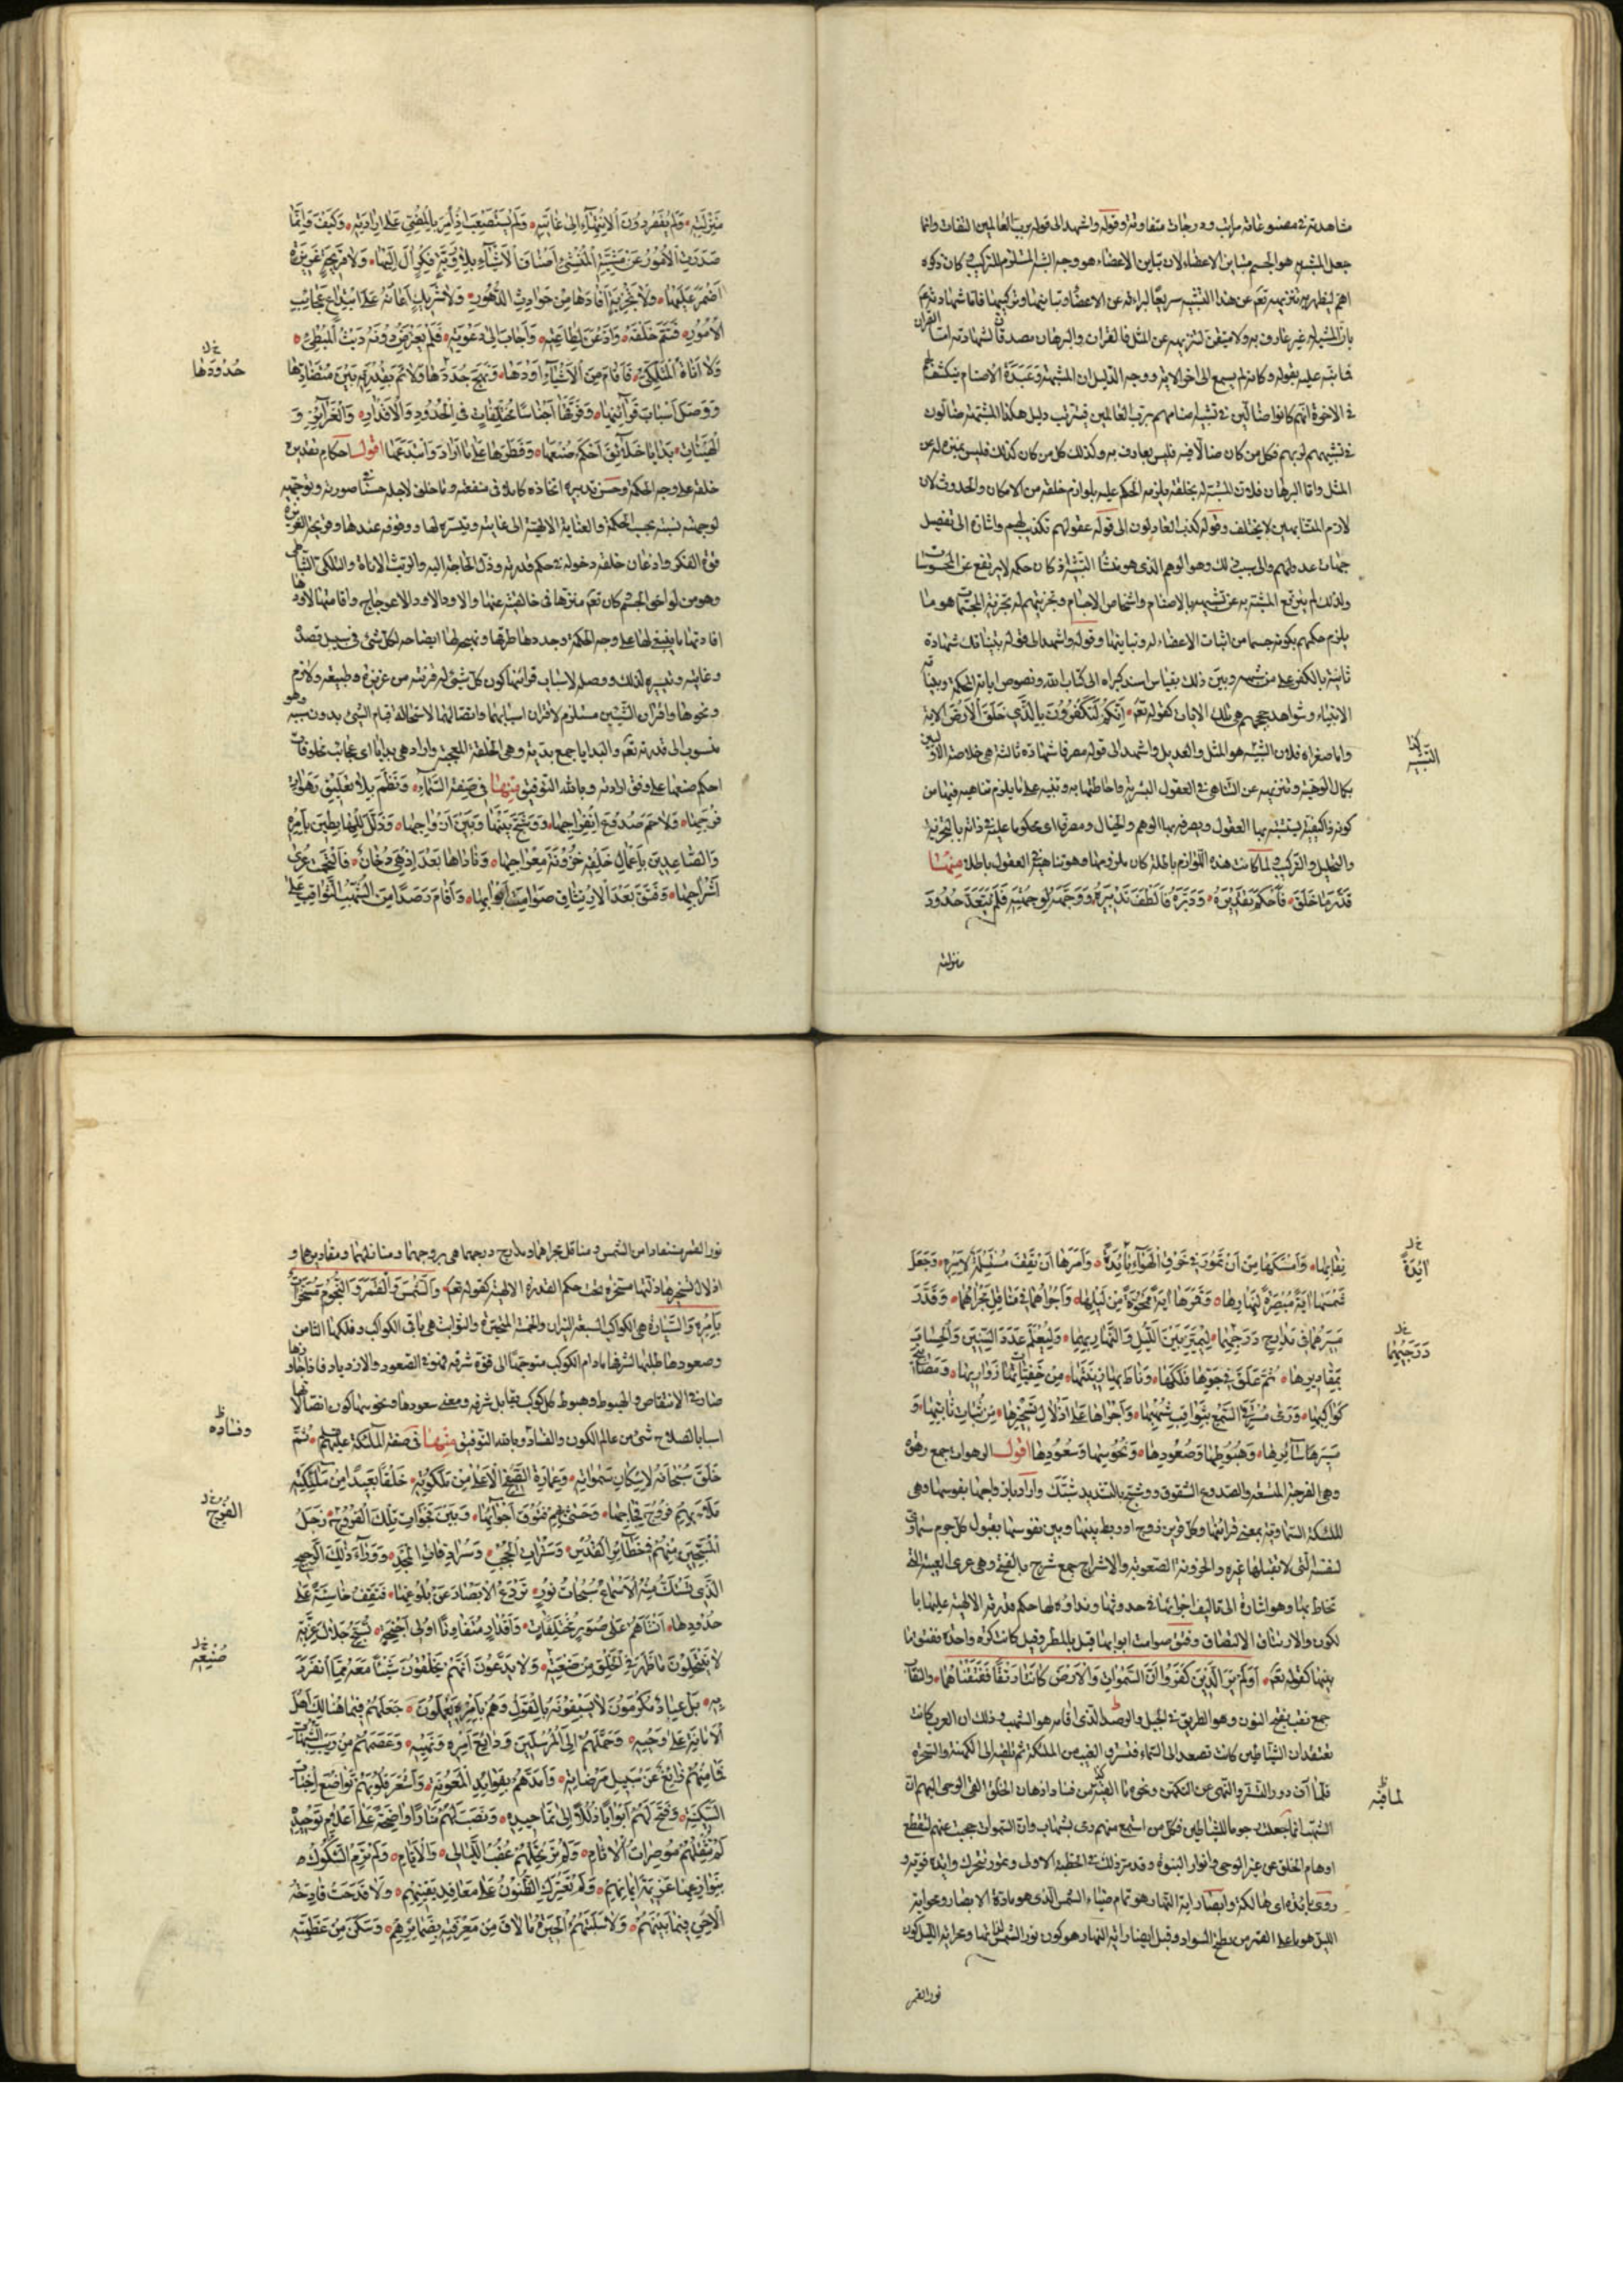 مشاهدته في مصنوعاته مراتب ودرجات متفاوته وقوله واشهد الى قوله برب العالمين التفات وانما
جعل المشبه هو الجسم متباين الاعضاء لان تباين الاعضاء هو وجه الشبه المستلزم للتركيب كان ذكره
اهم ليظهر به تنزيهه تعالى عن هذا التشبيه سريعا لبراءته عن الاعضاء وتباينها وتركيبها فاما شهادته
بان المشبه له غير عارف به ولا متيقن لتنزيهه عن المثل فالقران والبرهان مصدقان لشهادته اما القران
فما نبه عليه بقوله وكانه لم يسمع الى اخر الاية ووجه الدليل ان المشبهة وعبدة الاصنام ينكشف لهم
في الاخرة انهم كانوا ضالين في تشبيه اصنامهم برب العالمين فيترتب دليل هكذا المشبهة ضالون
في تشبيههم لربهم فكل من كان ضالا فيه فليس بعارف به وكذلك كل من كان كذلك فليس بمنزه له عن
المثل واما البرهان فلان المشبه له بخلقه يلزمه الحكم عليه بلوازم خلقه من الامكان والحدوث لان
لازم المتشابهين لا يختلف وقوله كذب العادلون الى قوله عقولهم تكذيب لهم واشارة الى تفصيل
جهات عدولهم والى سبب ذلك وهو الوهم الذي هو منشأ التشبيه اذ كان حكمه لا يرتفع عن المحسوسات
ولذلك لم يترفع المشبه به عن تشبيهه بالاصنام واشخاص الاجسام وتجزيتهم له تجزية المجسمات هو ما
يلزم حكمهم بكونه جسما من اثبات الاعضاء له وتباينها وقوله واشهد الى قوله بيناتك شهادة
ثانية بالكفر على من شبهه وبين ذلك بقياس اسند كبراه الى كتاب الله ونصوص اياته المحكمة وبينات
الانبياء وشواهد حججهم هي تلك الايات كقوله تعالى ائنكم لتكفرون بالذي خلق الارض الاية
واما صغراه فلان الشبيه هو المثل والعديل واشهد الى قوله مصرفا شهادة ثالثة هي خلاصة الاولين
بكمال الوهيته وتنزيهه عن التناهي في العقول البشرية واحاطتها به وتنبيه على ما يلزم تناهيه فيها من
كونه ذا كيفية تثبته بها العقول ويصرفه بها الوهم والخيال ومصرفا اي محكوما عليه في ذاته بالتجزية
والتحليل والتركيب لما كانت هذه اللوازم باطلة كان ملزومها وهو تناهيه في العقول باطلا منها
قدر ما خلق فاحكم تقديره ودبره فالطف تدبيره ووجهه لوجهته فلم يتعد حدود
منزلته
كذا
التشبيه
منزلته ولم يقصر دون الانتهاء الى غايته ولم يستصعب اذ امر بالمضي على ارادته وكيف وانما
صدرت الامور عن مشيته المنشئ اصناف الاشياء بلا روية فكر ال اليها ولا قريحة غريزة
اضمر عليها ولا تجربة افادها من حوادث الدهور ولا شريك اعانه على ابتداع عجائب
الامور فتم خلقه واذعن لطاعته واجاب الى دعوته فلم يعترض دونه ريث المبطئ
ولا اناة المتلكئ فاقام من الاشياء اودها ونهج جددها ولائم بقدرته بين متضادها
ووصل اسباب قرائنها وفرقها اجناسا مختلفات في الحدود والاقدار والغرائز و
الهيئات بدايا خلائق احكم صنعها وفطرها على ما اراد وابتدعها اقول احكام تقديره
خلقه على وجه الحكمة وحسن تدبيره ايجاده كاملا في منفعته وما خلق لاجله حسنا صورته وتوجيهه
لوجهته نسبته بحسب الحكمة والعناية الالهية الى غايته وتيسره لها ووقوفه عندها وقريحة الغريزة
قوة الفكر واذعان خلقه دخوله في حكم قدرته وذل الحاجة اليه والريث الاناة والتلكئ التباطئ
وهو من لواحق الجسم كان تعالى منزها في خالقيته عنها والاود الاعوجاج واقامتها لاودها
افادتها ما ينبغي لها على وجه الحكمة وجددها طرقها ونهجه لها ايضاحه لكل شئ في سبيل قصده
وغايته وتيسيره لذلك ووصله لاسباب قرائنها كون كل شئ له قرينة من غريزة وطبيعة ولازم
ونحوها واقران الشيئين مستلزم لاقران اسبابها واتصالها لاستحالة قيام الشئ بدون سببه وهو
منسوب الى قدرته تعالى والبدايا جمع بدية وهي الخلقة العجيبة واراد هي بدايا اي عجائب مخلوقات
احكم صنعها على وفق ارادته وبالله التوفيق منها في صفة السماء ونظم بلا تعليق رهوات
فرجها ولاحم صدوع انفراجها ووشج بينها وبين ازواجها وذلل للهابطين بامره
والصاعدين باعمال خلقه حزونة معراجها وناداها بعد اذ هي دخان فالتحمت عرى
اشراجها وفتق بعد الارتتاق صوامت ابوابها واقام رصدا من الشهب الثواقب على
حدودها
نقابها وامسكها من ان تمور في خرق الهواء بائدة وامرها ان تقف مستسلمة لامره وجعل
شمسها اية مبصرة لنهارها وقمرها اية ممحوة من ليلها واجراهما في مناقل مجراهما وقدر
سيرهما في مدارج درجهما ليميز بين الليل والنهار بهما وليعلم عدد السنين والحساب
بمقاديرها ثم علق في جوها فلكها وناط بها زينتها من خفيات دراريها ومصابيح
كواكبها ورمى مسترقي السمع بثواقب شهبها واجراها على اذلال تسخيرها من ثبات ثابتها و
مسير سائرها وهبوطها وصعودها ونحوسها وسعودها اقول الرهوات جمع رهوة
وهي الفرجة المتسعة والصدوع الشقوق ووشج بالتشديد شبك واراد بازواجها نفوسها وهي
الملئكة السماوية بمعنى قرائنها وكل قرين زوج اي وربط بينها وبين نفوسها بقبول كل جرم سماوي
لنفسه التي لا يقبلها غيره والحزونة الصعوبة والاشراج جمع شرج بالفتح وهي عرى العيبة التي
تخاط بها وهو اشارة الى تاليف اجزائها في حدوثها ونداؤه لها حكم قدرته الالهية عليها بما
تكون والارتتاق الالتصاق وفتق صوامت ابوابها قيل بالمطر وقيل كانت كرة واحدة ففتق ما
بينها كقوله تعالى اولم ير الذين كفروا ان السموات والارض كانتا رتقا ففتقناهما والنقاب
جمع نقب بفتح النون وهو الطريق في الجبل والرصد الذي اقامه هو الشهب وذلك ان العرب كانت
تعتقد ان الشياطين كانت تصعد الى السماء فتسترق الغيب من الملئكة ثم تلقيه الى الكهنة والسحرة
فلما آن دور الستر والنهي عن التكهن ونحوه لما فيه من فساد اذهان الخلق القى الوحي اليهم ان
الشهب انما جعلت رجوما للشياطين فكل من استمع منهم رمى بشهاب وان السموات حجبت عنهم لتنقطع
اوهام الخلق عن غير الوحي وانوار النبوة وقد مر ذلك في الخطبة الاولى وتمور تتحرك وايده قوته و
روى بائدة اي هالكة وابصار اية النهار هو تمام ضياء الشمس الذي هو مادة الابصار ومحو اية
الليل هو ما على القمر من سطح السواد وقيل ابصار اية النهار هو كون نور الشمس ذاتها ومحو اية الليل كون
نور القمر
ائدة
درجتهما
لما فيه
نور القمر مستفادا من الشمس ومناقل مجراهما ومدارج درجهما هي بروجهما ومنازلهما ومقاديرها و
اذلال تسخيرها ذلتها مسخرة تحت حكم القدرة الالهية كقوله تعالى والشمس والقمر والنجوم مسخرات
بامره والسيارة هي الكواكب السبعة النيران والخمسة المتحيرة والثوابت هي باقي الكواكب وفلكها الثامن
وصعودها طلبها لشرفها مادام الكوكب متوجها الى قوة شرفه فهو في الصعود والازدياد فاذا جازها
صار في الانتقاص والهبوط وهبوط كل كوكب يقابل شرفه ومعنى سعودها ونحوسها كون اتصالاتها
اسبابا لصلاح شئ من عالم الكون والفساد وبالله التوفيق منها في صفة الملئكة عليهم السلم ثم
خلق سبحانه لاسكان سمواته وعمارة الصفيح الاعلى من ملكوته خلقا بديعا من ملئكته
ملأ بهم فروج فجاجها وحشى بهم فتوق اجوائها وبين فجوات تلك الفروج زجل
المسبحين منهم في حظائر القدس وسترات الحجب وسرادقات المجد ووراء ذلك الرجيج
الذي تستك منه الاسماع سبحات نور تردع الابصار عن بلوغها فتقف خاسئة على
حدودها انشأهم على صور مختلفات واقدار متفاوتات اولي اجنحة تسبح جلال عزته
لا ينتحلون ما ظهر في الخلق من صنعته ولا يدعون انهم يخلقون شيئا معه مما انفرد
به بل عباد مكرمون لا يسبقونه بالقول وهم بامره يعملون جعلهم فيما هنالك اهل
الامانة على وحيه وحملهم الى المرسلين ودائع امره ونهيه وعصمهم من ريب الشبهات
فما منهم زائغ عن سبيل مرضاته وامدهم بفوائد المعونة واشعر قلوبهم تواضع اخبات
السكينة وفتح لهم ابوابا ذللا الى تماجيده ونصب لهم منارا واضحة على اعلام توحيده
لم تثقلهم موصرات الاثام ولم ترتحلهم عقب الليالي والايام ولم ترم الشكوك
بنوازعها عزيمة ايمانهم ولم تعترك الظنون على معاقد يقينهم ولا قدحت قادحة
الاحن فيما بينهم ولا سلبتهم الحيرة ما لاق من معرفته بضمائرهم وسكن من عظمته
وفساده
الفروج
صنعه